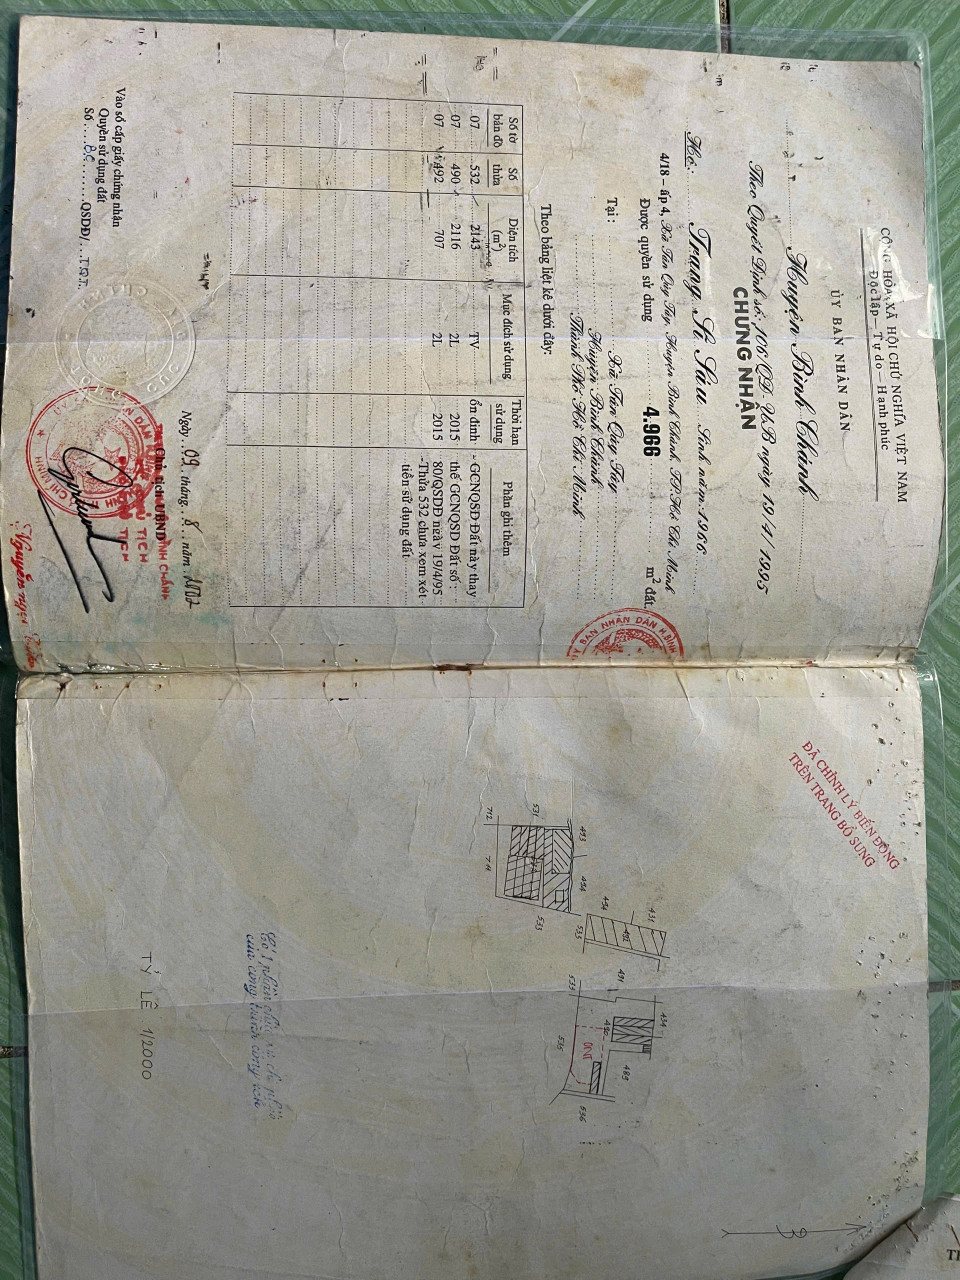 CỘNG HÒA XÃ HỘI CHỦ NGHĨA VIỆT NAM
Độc lập – Tự do – Hạnh phúc
ỦY BAN NHÂN DÂN
Huyện Bình Chánh
Theo Quyết Định số: 106/QĐ-UB ngày 19/4/1995
CHỨNG NHẬN
Hộ: Trang Si Sáu Sinh năm 1966
4/18 – ấp 4, Xã Tân Quý Tây, Huyện Bình Chánh, TP Hồ Chí Minh
Được quyền sử dụng 4.966 m² đất.
Tại: Xã Tân Quý Tây
Huyện Bình Chánh
Thành Phố Hồ Chí Minh
Theo bảng liệt kê dưới đây:
Số tờ bản đồ | Số thửa | Diện tích (m²) | Mục đích sử dụng | Thời hạn sử dụng | Phần ghi thêm
07 | 532 | 2143 | TV | ổn định | - GCNQSD Đất này thay
07 | 490 | 2116 | 2L | 2015 | thế GCNQSD Đất số :
07 | 492 | 707 | 2L | 2015 | 80/QSDĐ ngày 19/4/95
- Thửa 532 chưa xem xét
tiền sử dụng đất
Ngày 09 tháng 8 năm 2002
Chủ tịch UBND
Vào sổ cấp giấy chứng nhận
Quyền sử dụng đất
Số QSDĐ/
ỦY BAN NHÂN DÂN H.BÌNH
ĐÃ CHỈNH LÝ BIẾN ĐỘNG
TRÊN TRANG BỔ SUNG
431
494
492
535
493
494
531
533
712
711
434
491
490
489
ONT
535
536
TỶ LỆ 1/2000